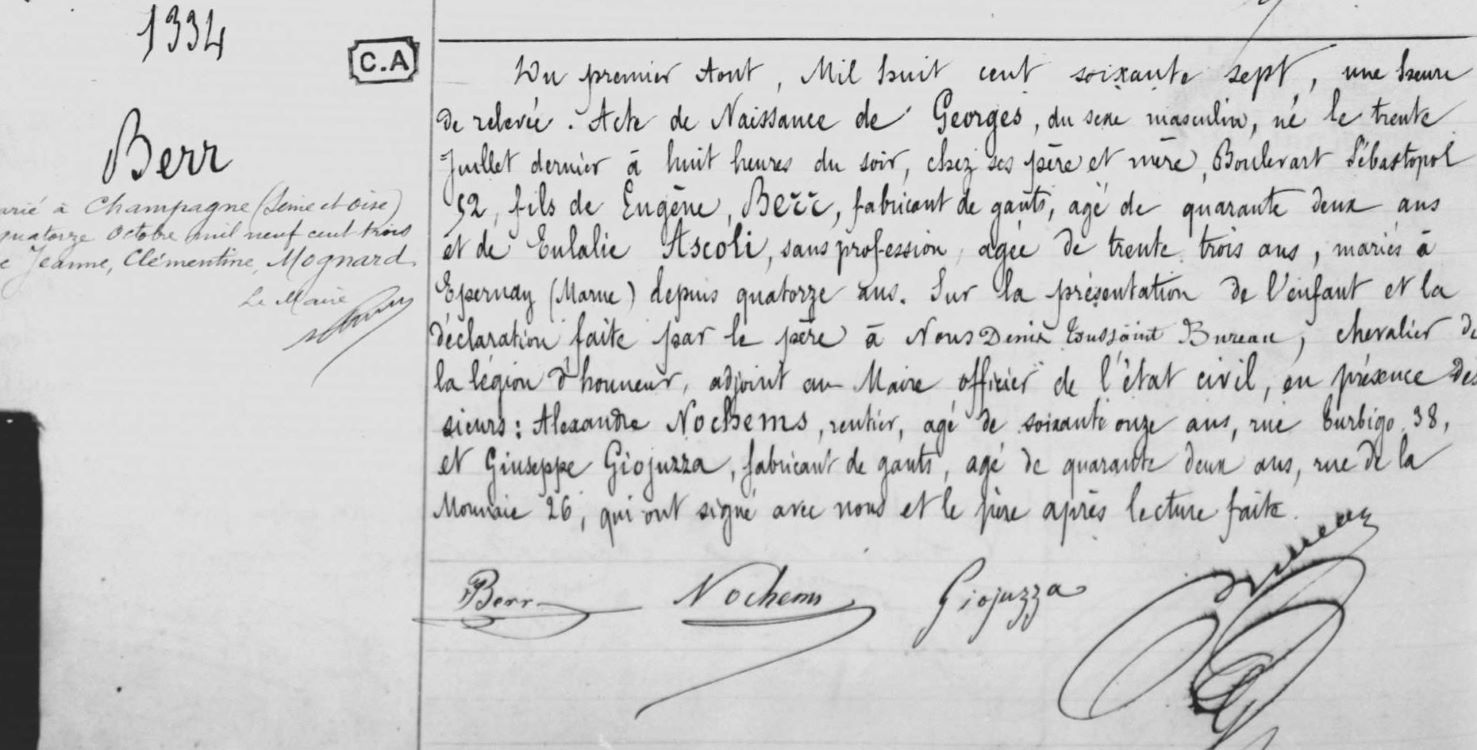 1334
C.A
Berr
arié à Champagne (Seine et Oise)
quatorze Octobre mil neuf cent trois
Jeanne, Clémentine, Mognard.
Le Maire
Du premier Aout, Mil huit cent soixante sept, une heure
de relevée. Acte de Naissance de Georges, du sexe masculin, né le trente
Juillet dernier à huit heures du soir, chez ses père et mère, Boulevart Sébastopol
52, fils de Eugène, Berr, fabricant de gants, agé de quarante deux ans
et de Eulalie Ascoli, sans profession, agée de trente trois ans, mariés à
Epernay (Marne) depuis quatorze ans. Sur la présentation de l'enfant et la
déclaration faite par le père à Nous Denis Toussaint Bureau, chevalier de
la légion d'honneur, adjoint au Maire officier de l'état civil, en présence des
sieurs: Alexandre Nochems, rentier, agé de soixante onze ans, rue Turbigo 38,
et Giuseppe Giojuzza, fabricant de gants, agé de quarante deux ans, rue de la
Monnaie 26, qui ont signé avec nous et le père après lecture faite.
Berr Nochems Giojuzza Bureau